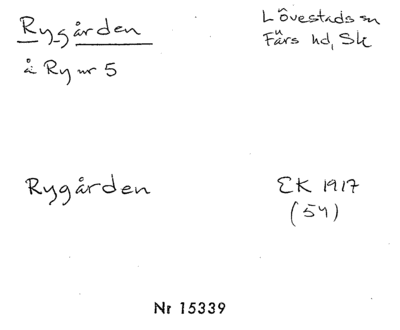 Rygården
Lövestads sn
Färs hd, Sk
å Ry nr 5
Rygården
EK 1917
(54)
Nr 15339